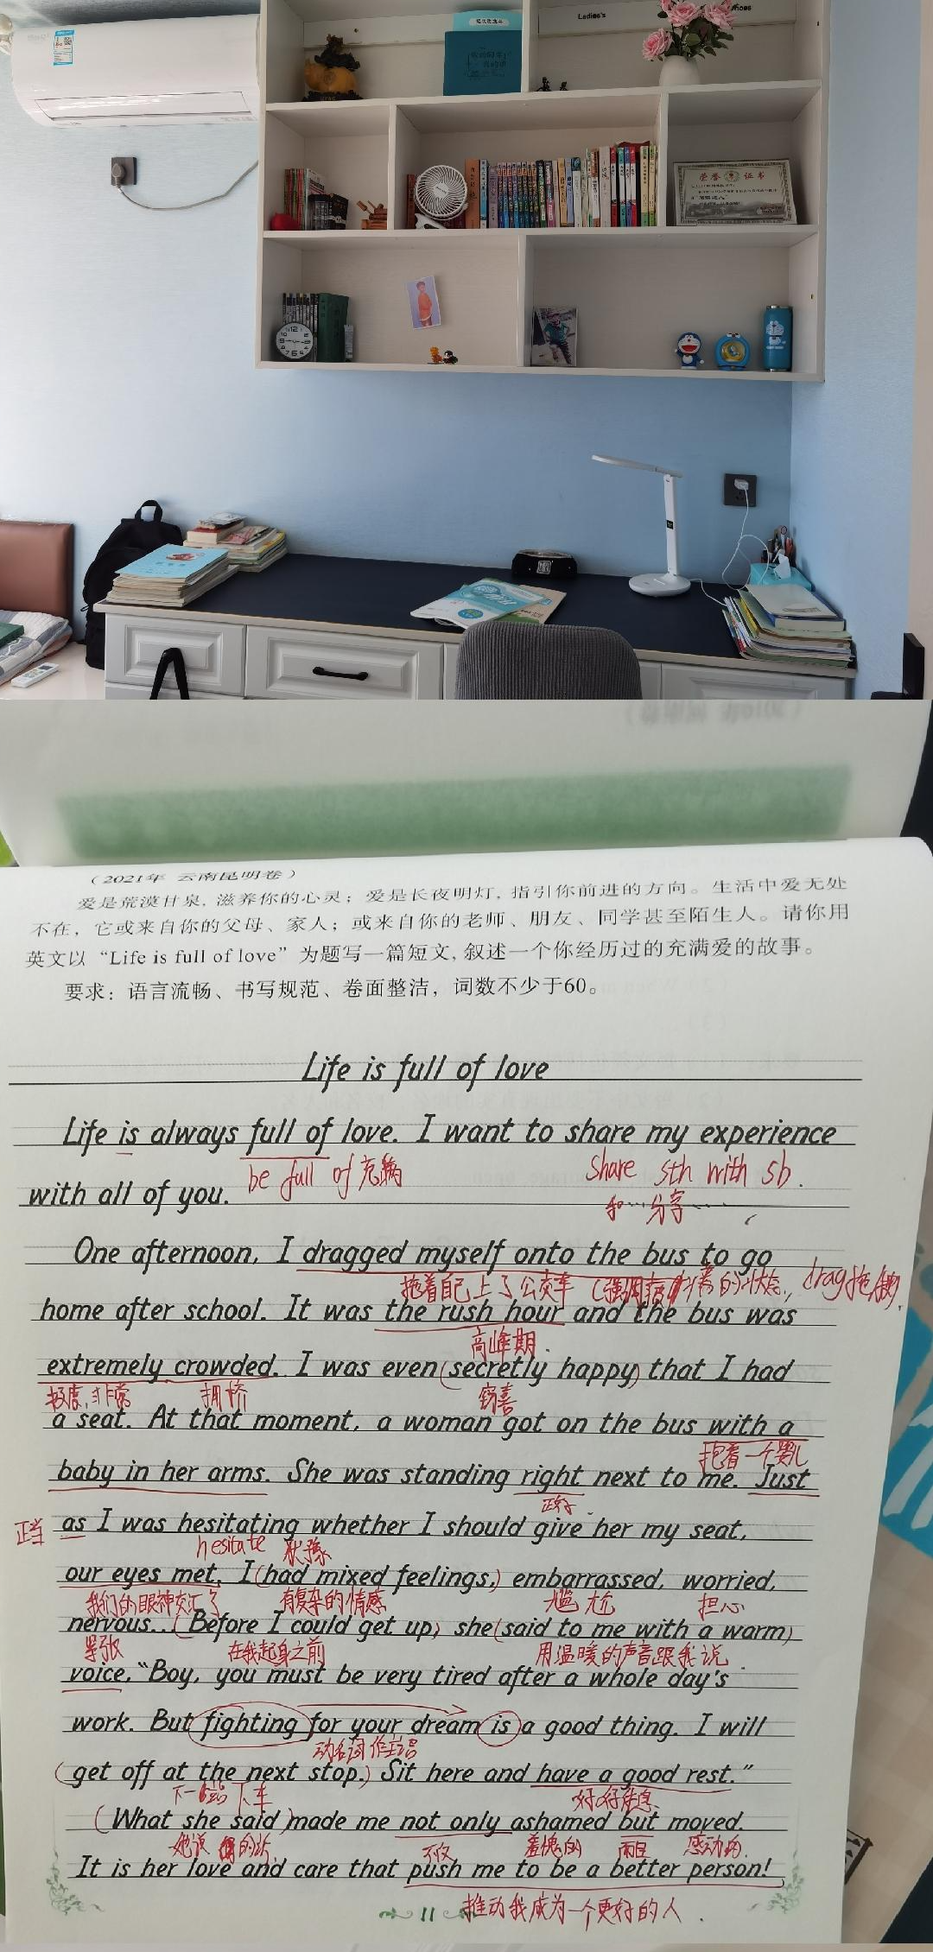 Ladies's
荣誉证书
(2021年 云南昆明卷)
爱是荒漠甘泉, 滋养你的心灵; 爱是长夜明灯, 指引你前进的方向。生活中爱无处
不在, 它或来自你的父母、家人; 或来自你的老师、朋友、同学甚至陌生人。请你用
英文以 “Life is full of love” 为题写一篇短文, 叙述一个你经历过的充满爱的故事。
要求: 语言流畅、书写规范、卷面整洁, 词数不少于60。
Life is full of love
Life is always full of love. I want to share my experience
be full of 充满 share sth with sb.
with all of you.
和…分享…
One afternoon, I dragged myself onto the bus to go
拖着自己上了公交车
home after school. It was the rush hour and the bus was
高峰期.
extremely crowded. I was even (secretly happy) that I had
极度,非常 拥挤 窃喜
a seat. At that moment, a woman got on the bus with a
抱着一个婴儿
baby in her arms. She was standing right next to me. Just
正好
正当 as I was hesitating whether I should give her my seat,
hesitate 犹豫
our eyes met, I (had mixed feelings,) embarrassed, worried,
我们的眼神交汇了 有复杂的情感 尴尬 担心
nervous... (Before I could get up) she (said to me with a warm)
紧张 在我起身之前 用温暖的声音跟我说
voice, “Boy, you must be very tired after a whole day's
work. But fighting for your dream is a good thing. I will
动名词作主语
(get off at the next stop.) Sit here and have a good rest.”
下一站下车 好好休息
(What she said) made me not only ashamed but moved.
她说的话 不仅 羞愧的 而且 感动的.
It is her love and care that push me to be a better person!
11 推动我成为一个更好的人.